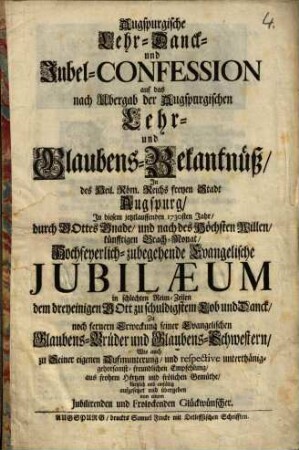 4.
Augspurgische
Lehr-Danck-
und
Jubel-CONFESSION
auf das
nach Übergab der Augspurgischen
Lehr-
und
Glaubens-Bekantnüß/
In
des Heil. Röm. Reichs freyen Stadt
Augspurg/
In diesem jeztlauffenden 1730sten Jahr/
durch GOttes Gnade/ und nach des Höchsten Willen/
künfftigen Brach-Monat/
Hochfeyerlich-zubegehende Evangelische
JUBILÆUM
in schlechten Reim-Zeilen
dem dreyeinigen GOtt zu schuldigstem Lob und Danck/
Zu
noch fernern Erweckung seiner Evangelischen
Glaubens-Brüder und Glaubens-Schwestern/
Wie auch
zu Seiner eigenen Aufmunterung/ und respective unterthänig-
gehorsamst-freundlichen Empfehlung/
aus frohem Hertzen und frölichen Gemüthe/
aufgesetzt und übergeben
von einem
Jubilirenden und Frolockenden Glückwünscher.
AUGSPURG/ druckts Samuel Fincke mit Schrifften.